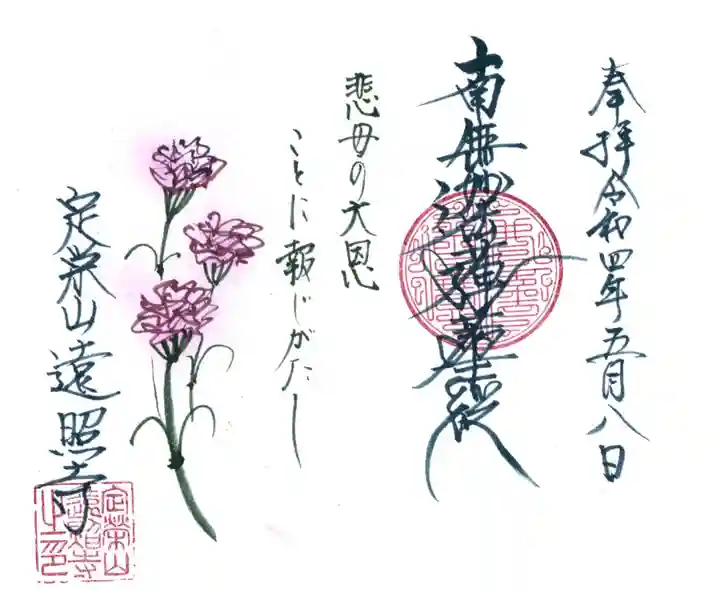 奉拝 令和四年五月八日
南無妙法蓮華経
悲母の大恩
ことに報じがたし
定栄山 遠照寺
定榮山
遠照寺
之印